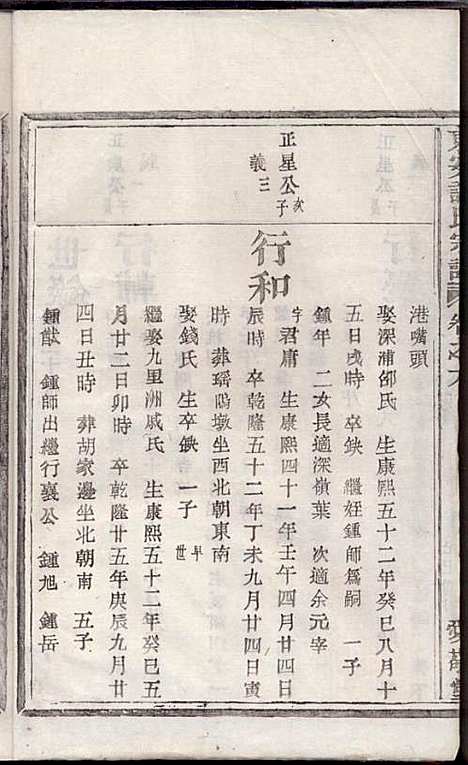 港嘴頭
娶深浦邵氏 生康熙五十二年癸巳八月十
五日戌時 卒缺 繼姪鍾師爲嗣 一子
鍾年 二女長適深嶺葉 次適余元宰
正星公次子
義三
行和
字君庸 生康熙四十一年壬午四月廿四日
辰時 卒乾隆五十二年丁未九月廿四日寅
時 葬瑶塢墩坐西北朝東南
娶錢氏 生卒缺 一子早世
繼娶九里洲戚氏 生康熙五十二年癸巳五
月廿二日卯時 卒乾隆廿五年庚辰九月廿
四日丑時 葬胡家邊坐北朝南 五子
鍾猷 鍾師出繼行襄公 鍾旭 鍾岳
氏宗譜 卷之九
愛敬堂